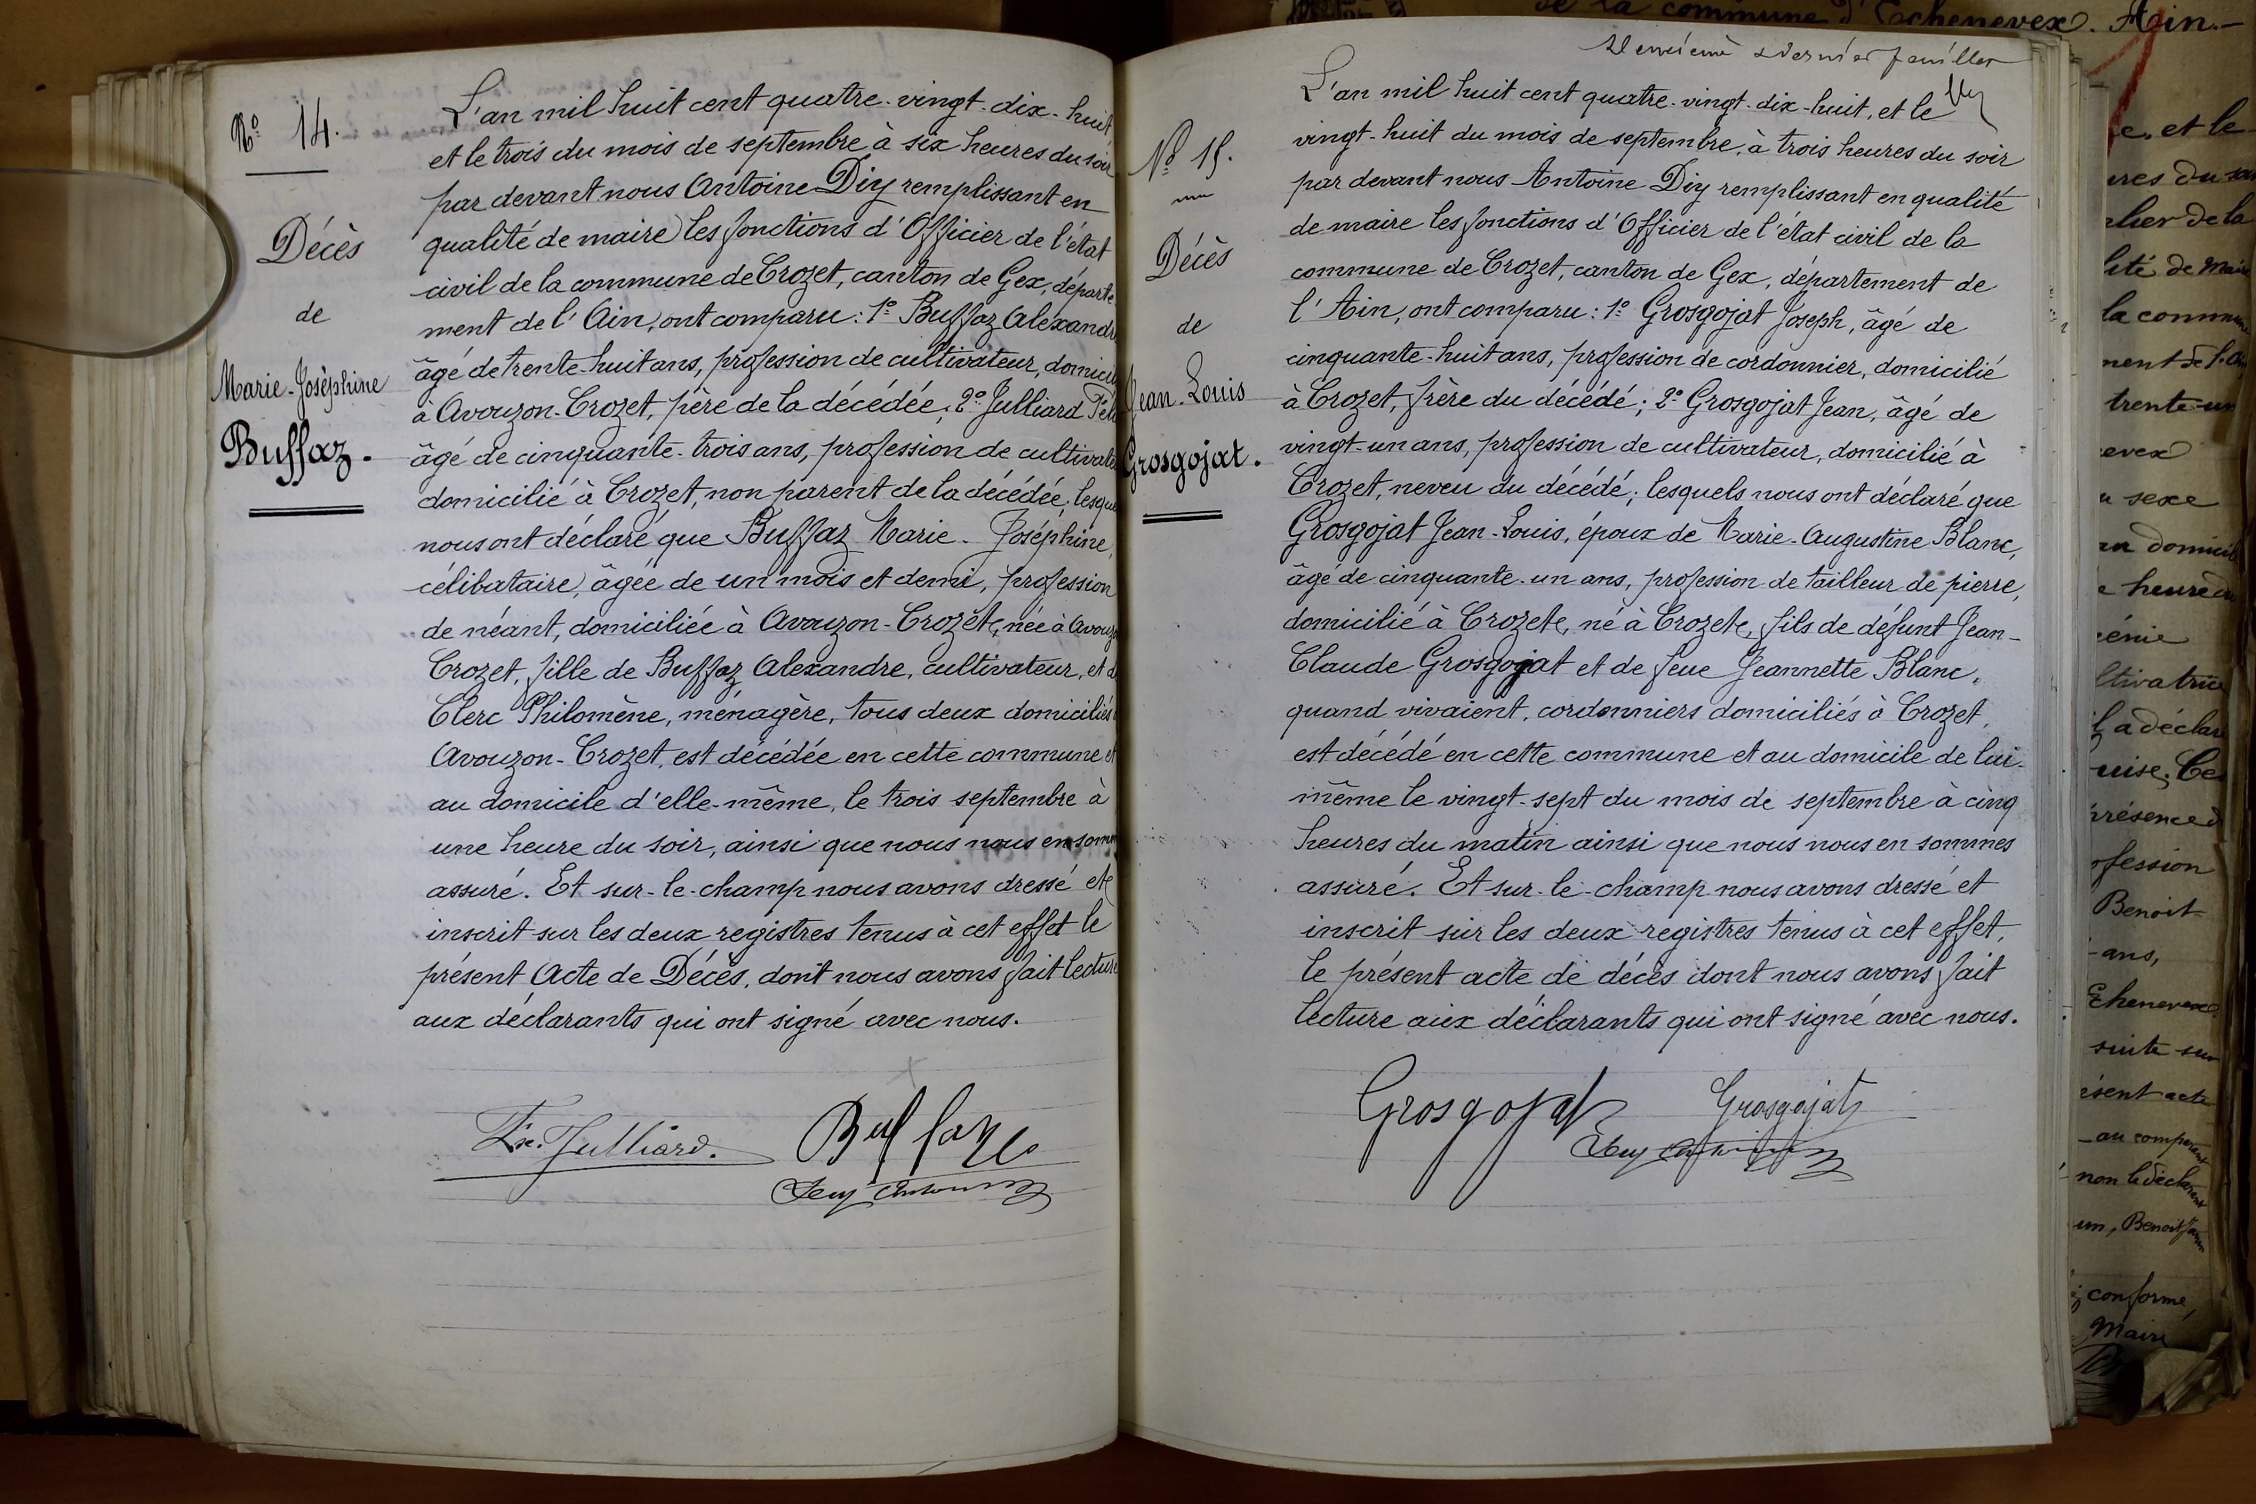 N° 14.
Décès
de
Marie-Joséphine
Buffaz.
L'an mil huit cent quatre-vingt-dix-huit
et le trois du mois de septembre à six heures du soir
par devant nous Antoine Diy remplissant en
qualité de maire les fonctions d'Officier de l'état
civil de la commune de Crozet, canton de Gex, départe
ment de l'Ain, ont comparu : 1° Buffaz Alexandre
âgé de trente-huit ans, profession de cultivateur, domicil
à Avouzon-Crozet, père de la décédée ; 2° Julliard
âgé de cinquante-trois ans, profession de cultivate
domicilié à Crozet, non parent de la décédée, lesque
nous ont déclaré que Buffaz Marie-Joséphine,
célibataire, âgée de un mois et demi, profession
de néant, domiciliée à Avouzon-Crozet, née à Avouzo
Crozet, fille de Buffaz Alexandre, cultivateur, et d
Clerc Philomène, ménagère, tous deux domiciliés
Avouzon-Crozet, est décédée en cette commune et
au domicile d'elle-même, le trois septembre à
une heure du soir, ainsi que nous nous en somm
assuré. Et sur-le-champ nous avons dressé et
inscrit sur les deux registres tenus à cet effet le
présent Acte de Décès, dont nous avons fait lecture
aux déclarants qui ont signé avec nous.
Julliard. Buffaz
Dey Antoine
Deuxième & dernier feuillet
N° 15.
Décès
de
Jean-Louis
Grosgojat.
L'an mil huit cent quatre-vingt-dix-huit, et le
vingt-huit du mois de septembre, à trois heures du soir
par devant nous Antoine Diy remplissant en qualité
de maire les fonctions d'Officier de l'état civil de la
commune de Crozet, canton de Gex, département de
l'Ain, ont comparu : 1° Grosgojat Joseph, âgé de
cinquante-huit ans, profession de cordonnier, domicilié
à Crozet, frère du décédé ; 2° Grosgojat Jean, âgé de
vingt-un ans, profession de cultivateur, domicilié à
Crozet, neveu du décédé ; lesquels nous ont déclaré que
Grosgojat Jean-Louis, époux de Marie-Augustine Blanc,
âgé de cinquante-un ans, profession de tailleur de pierre,
domicilié à Crozet, né à Crozet, fils de défunt Jean-
Claude Grosgojat et de feue Jeannette Blanc,
quand vivaient, cordonniers domiciliés à Crozet,
est décédé en cette commune et au domicile de lui-
même le vingt-sept du mois de septembre à cinq
heures du matin ainsi que nous nous en sommes
assuré. Et sur-le-champ nous avons dressé et
inscrit sur les deux registres tenus à cet effet,
le présent acte de décès dont nous avons fait
lecture aux déclarants qui ont signé avec nous.
Grosgojat Grosgojat
Dey Antoine
de la commune d'Echenevex. Ain.-
e, et le
ures du soir
lité de Maire
la commune
trente-un
evex
u sexe
heure du
énie
ltivatrice
l a déclaré
uise. Ce
présence d
ofession
Benoit
-ans,
Echenevex
suite sur
ésent acte
-au comparant
non le déclarant
un, Benoit
conforme,
Maire